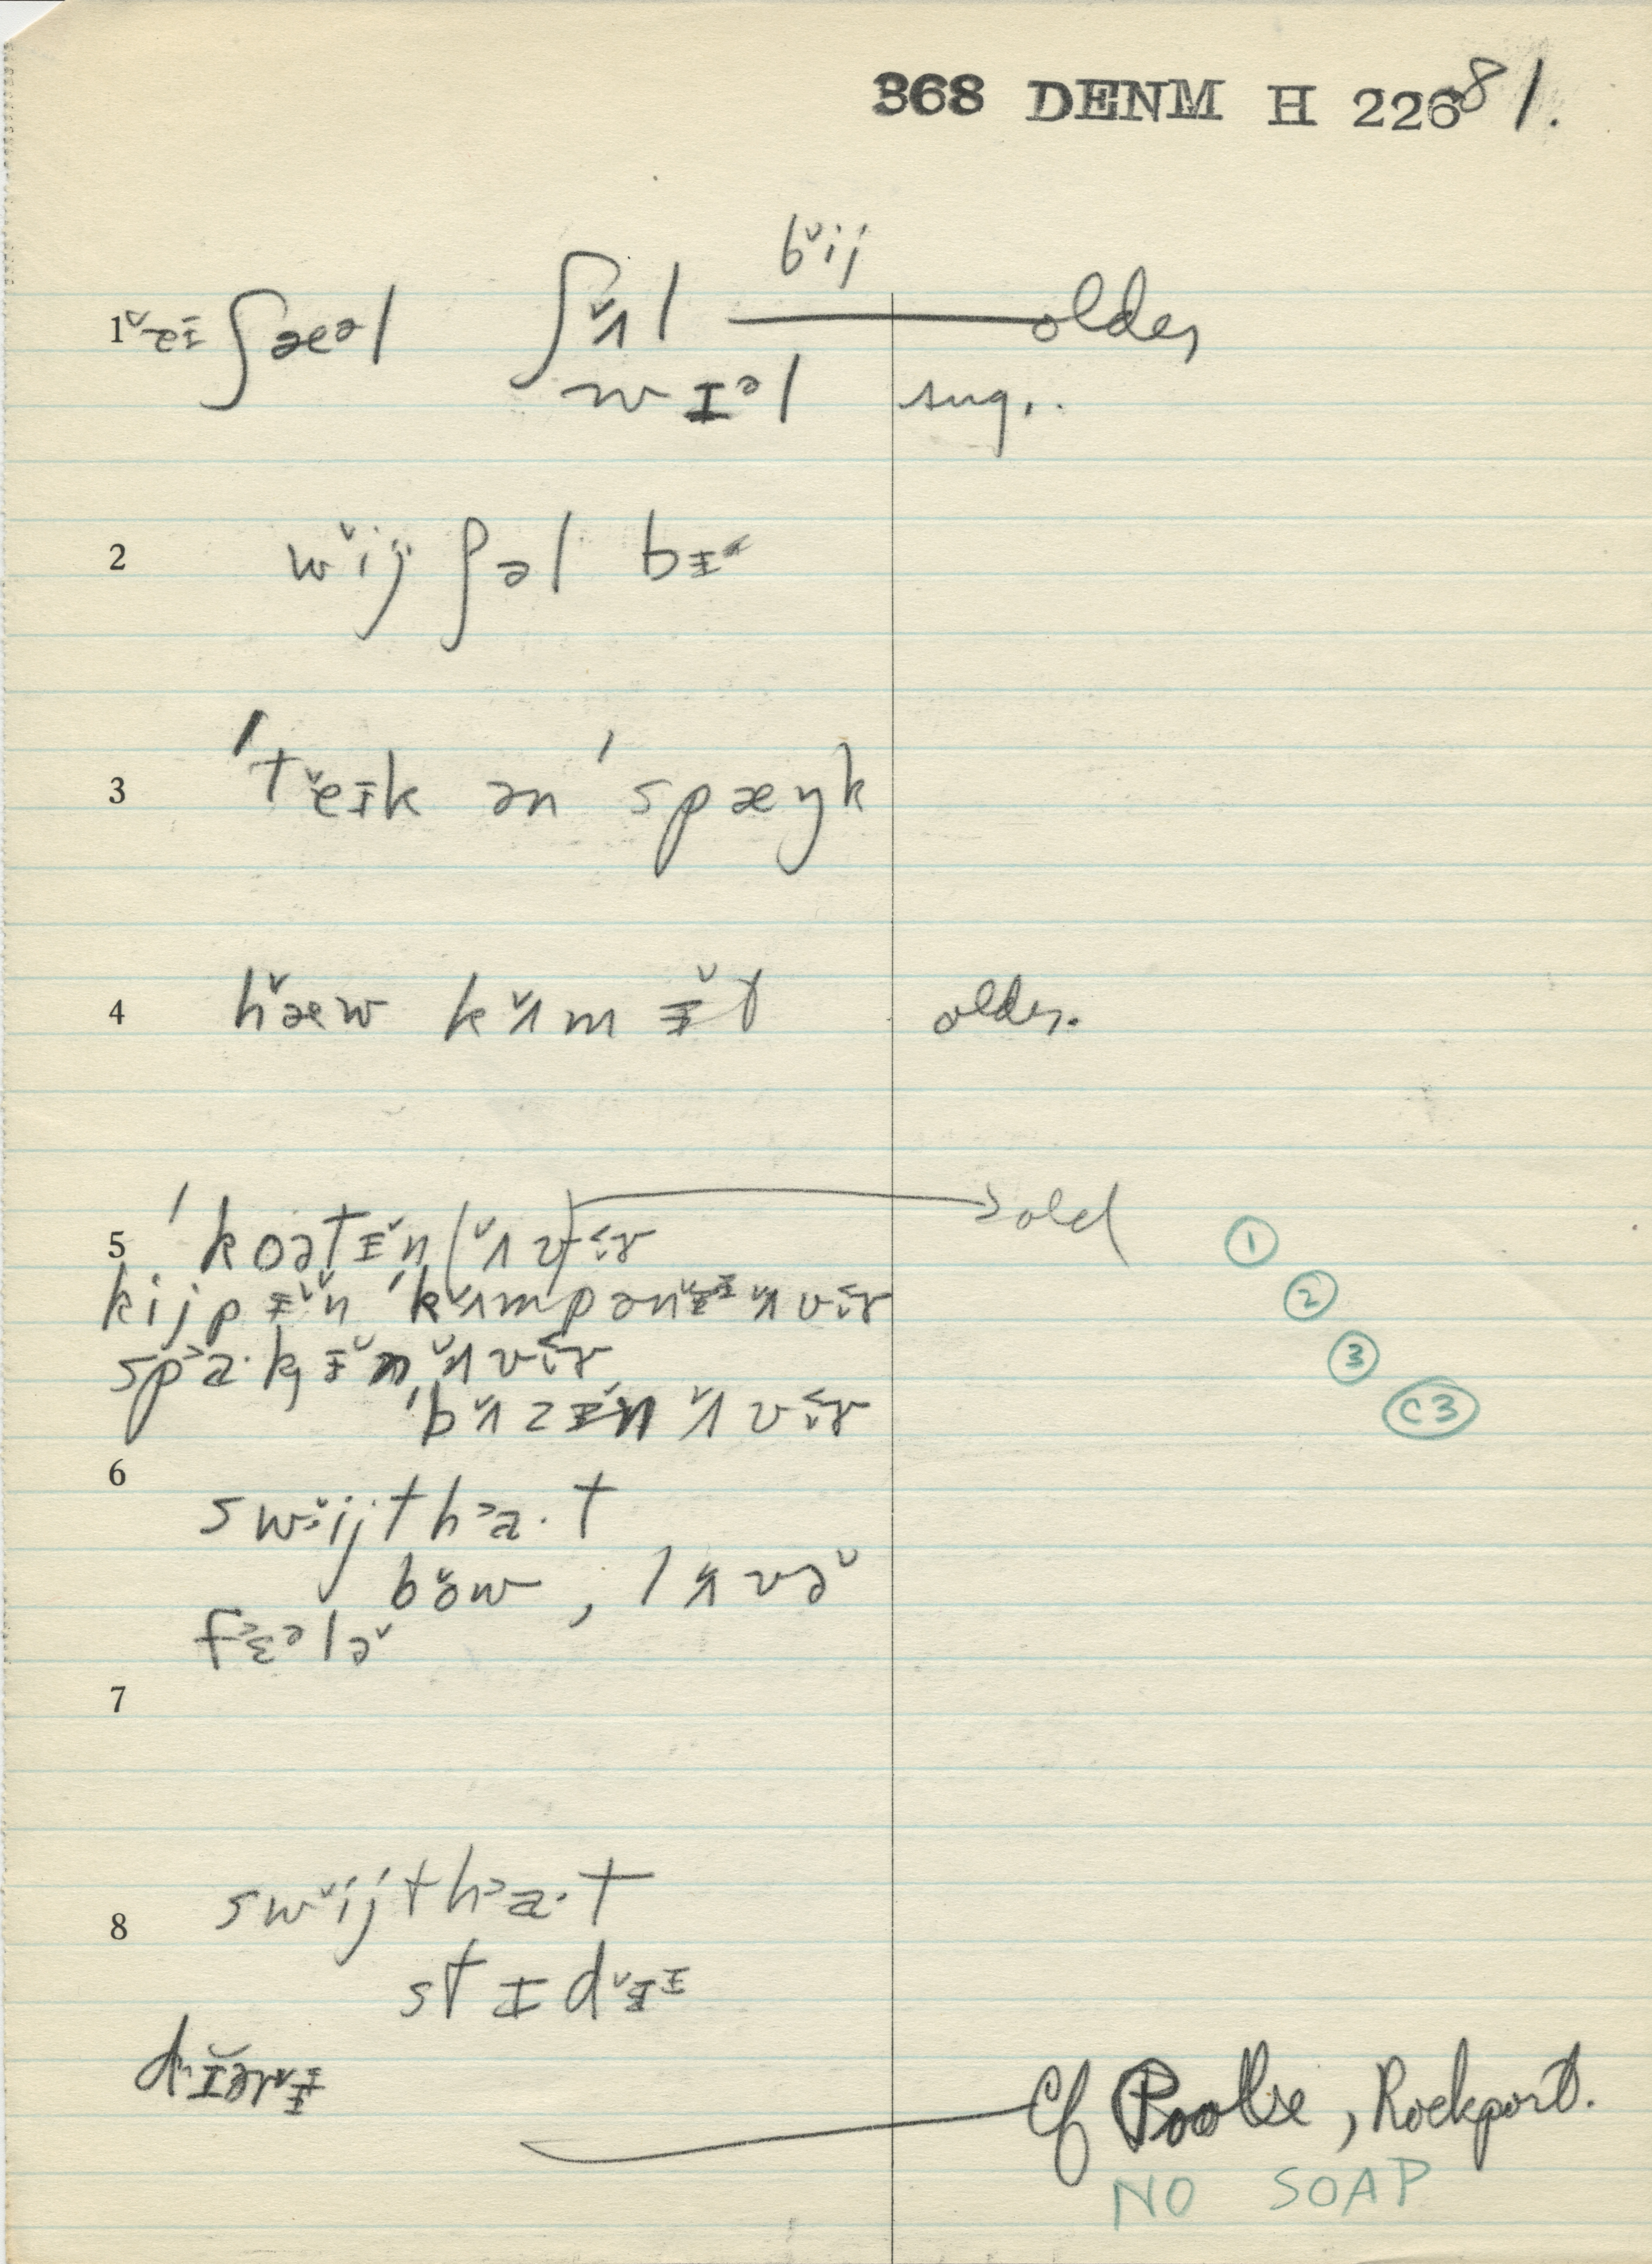 368 DENM H 226 81.
bˇij
1 ˇeɪ ʃæəl ʃˇʌl older
wɪəl sug..
2 wˇij ʃəl bɪ
3 'tˇeɪk ən 'spæŋk
4 hˇæw kˇʌm ɪˇt older.
5 'koətɪˇn (ˇʌv) ɪr old ①
kijpɪˇn 'kˇʌmpənɪ ˇʌvɪr ②
spa·kɪˇn ˇʌvɪr ③
'bˇʌzɪˇn ˇʌvɪr C3
6 swˇijtha·t
bˇow, lˇʌvəˇ
fɛələˇ
7
8 swˇijtha·t
stɪdˇɪ
dɪərɪ Cf Poole, Rockport.
NO SOAP